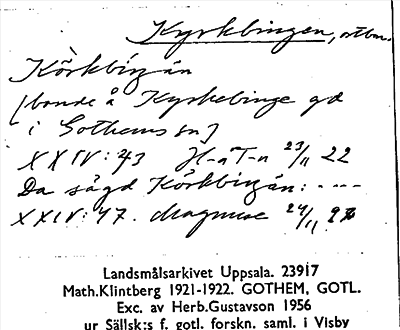 Kyrkbingen, ortbn.
Körkbingän
[bonde å Kyrkebinge gd
i Gothems sn]
XXIV: 43 H-a T-n 23/11 22
Da sägd Körkbingän: - - -
XXIV: 47. Magnuse 24/11
Landsmålsarkivet Uppsala. 23917
Math.Klintberg 1921-1922. GOTHEM, GOTL.
Exc. av Herb.Gustavson 1956
ur Sällsk:s f. gotl. forskn. saml. i Visby